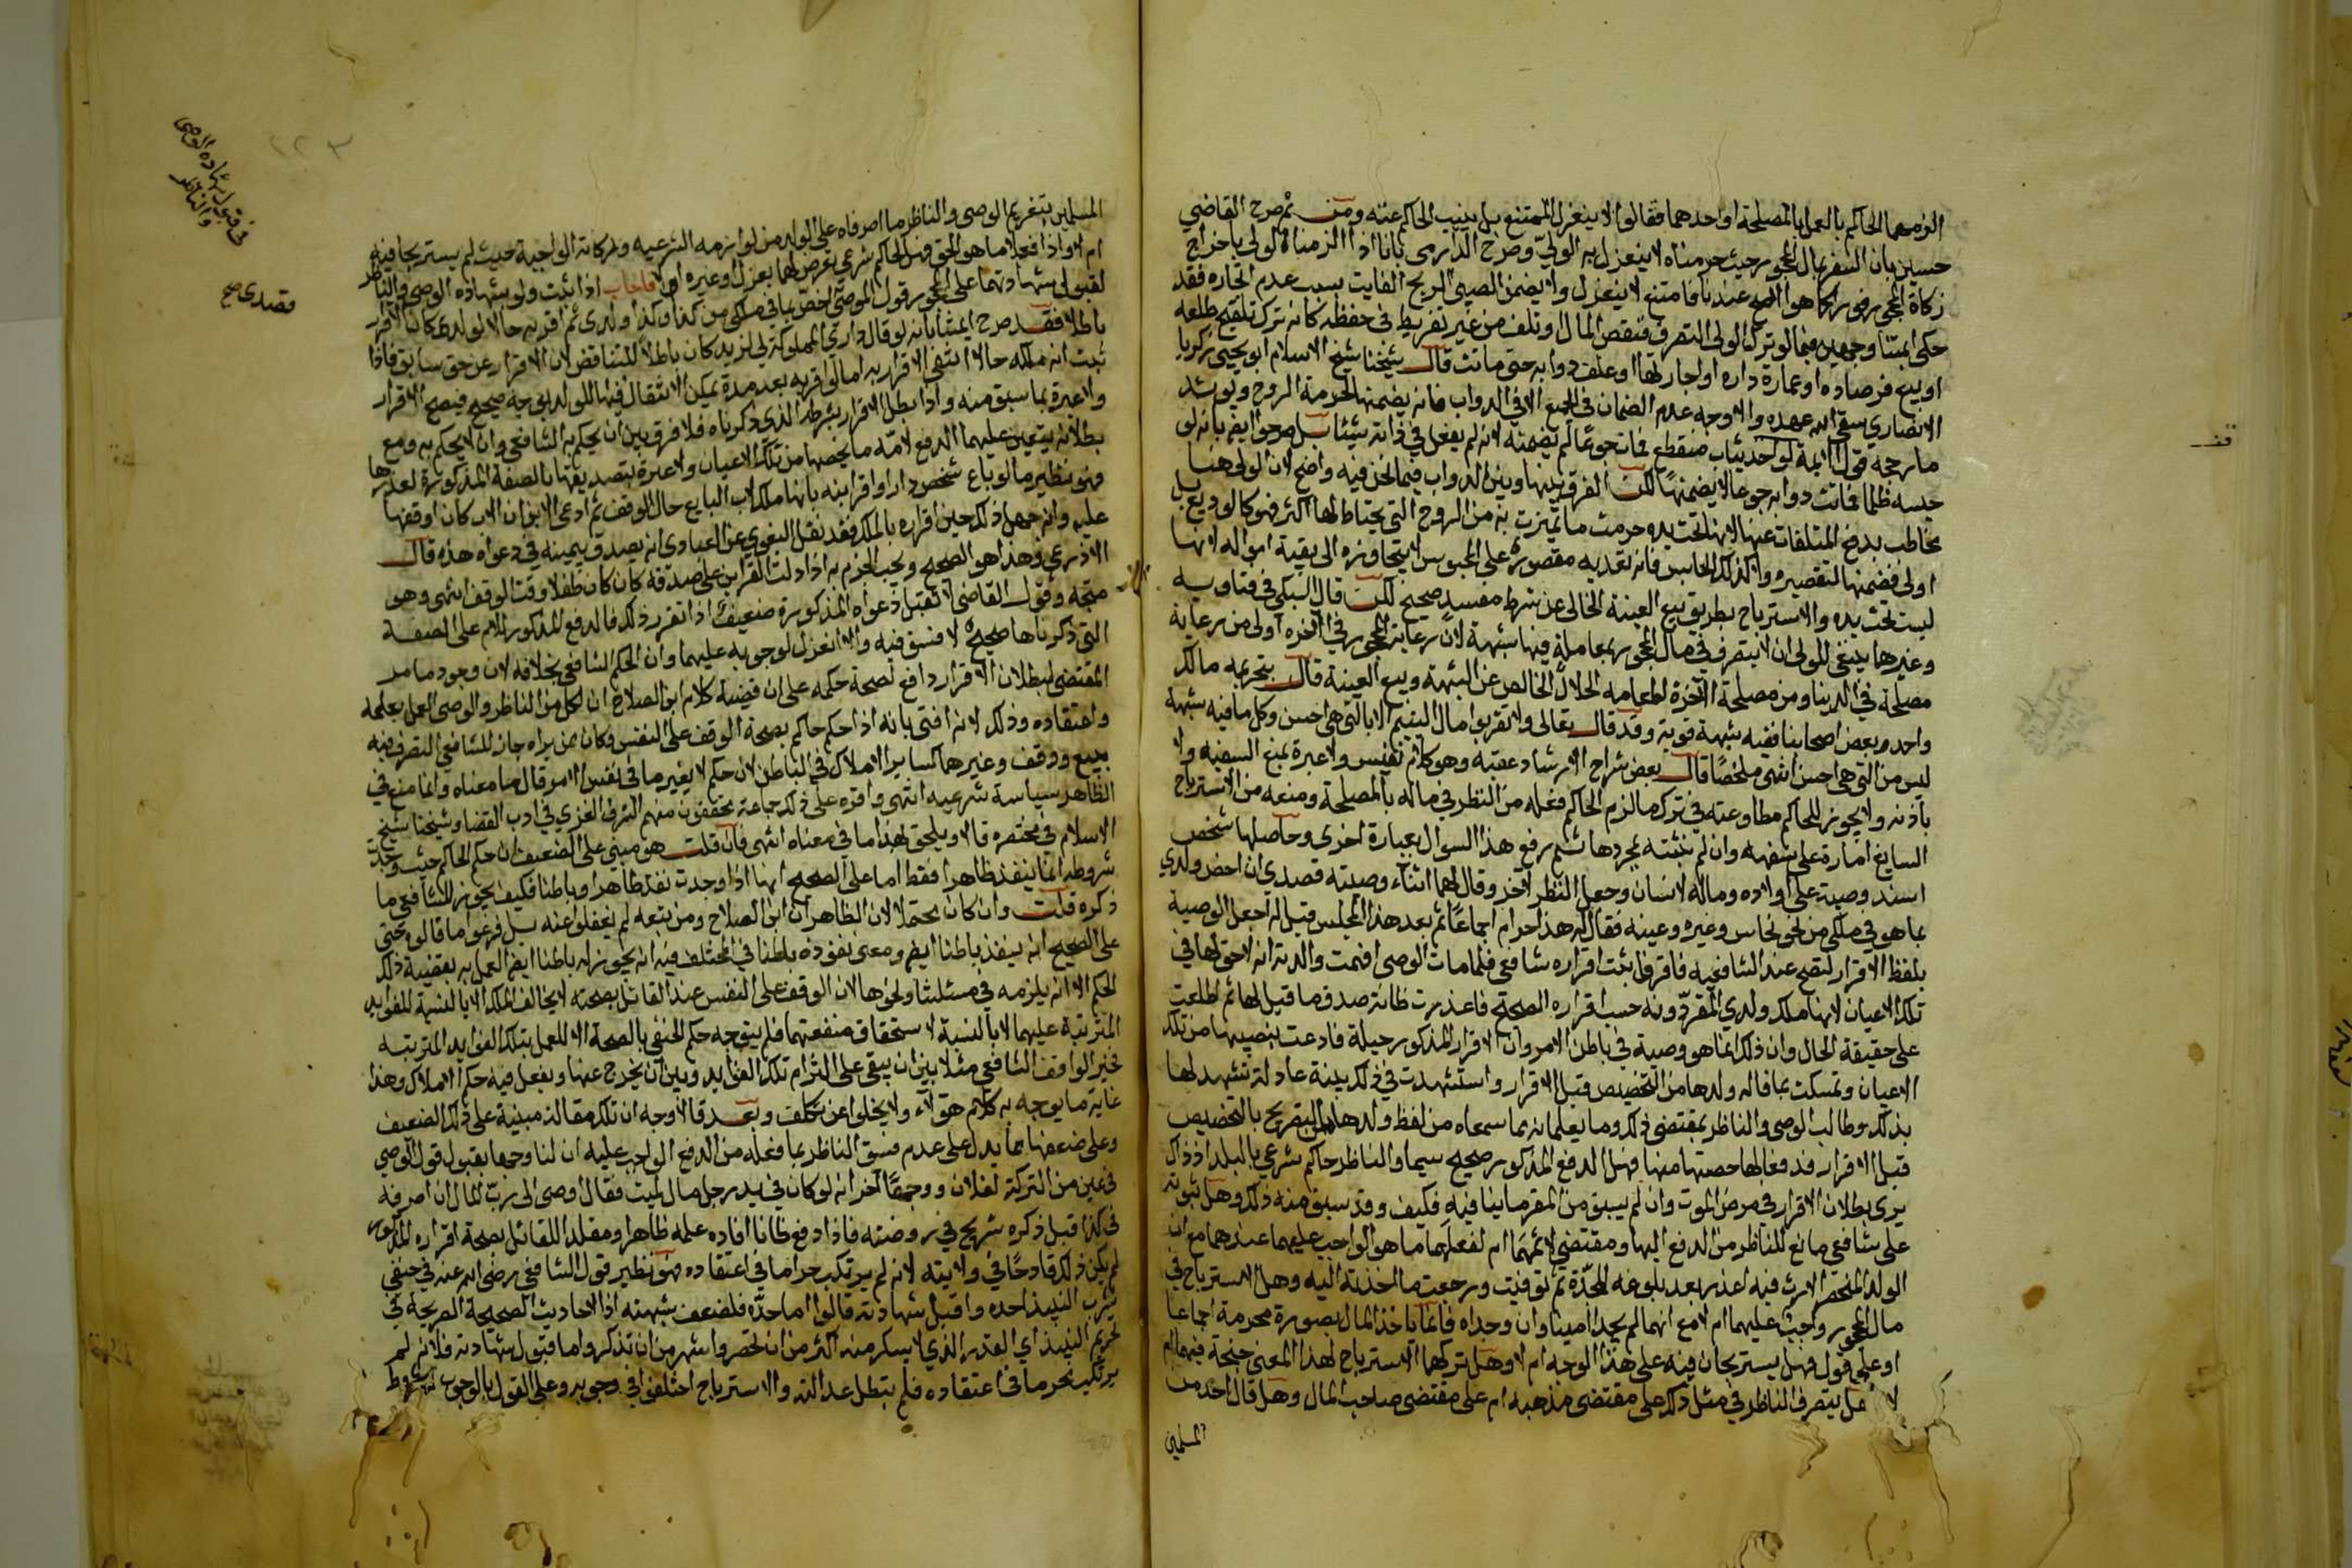 الزمهما الحاكم بالعمل بالمصلحة او احدهما فقالوا لا ينعزل الممتنع بل ينيب الحاكم عنه ومن ثم صرح القاضي
حسين بان السفر بمال المحجور حيث حرمناه لا ينعزل به الولي وصرح الدارمي بانا اذا الزمنا الولي باخراج
زكاة المحجور فورا كما هو الاصح عندنا فامتنع لا ينعزل ولا يضمن الصبي الربح الفايت بسبب عدم اتجاره فقد
حكى ائمتنا وجهين فيما لو ترك الولي التصرف فنقص المال وتلف من غير تفريط في حفظه كان ترك تلقيح طلعه
او بيع فرصاده او عمارة داره او اجارتها او علف دوابه حتى ماتت قال شيخنا شيخ الاسلام ابو يحيى زكريا
الانصاري سقى الله عهده والاوجه عدم الضمان في الجميع الا في الدواب فانه يضمنها لحرمة الروح ويؤيد
ما رجحه قول ايمة لو كحديثاب منقطع فمات جوعا لم يضمنه لانه لم يفعل في ذاته شيئا بل صرحوا ايضا بانه لو
حبسه ظلما فماتت دوابه جوعا لا يضمنها لكن الفرق بينها وبين الدواب فيما نحن فيه واضح لان الولي هنا
مخاطب بدفع المتلفات عنها لانها تحت يده حرمت ما تميزت به من الروح التي يحتاط لها اكثر فهو كالوديع بل
اولى فضمنها لتقصيره ولا كذلك الحابس فانه تعديه مقصورة على المحبوس لا يتجاوزه الى بقية امواله لانها
ليست تحت يده والاسترباح بطريق بيع العينة الخالي عن شرط مفسد صحيح لكن قال السبكي في فتاويه
وغيرها ينبغي للولي ان لا يتصرف في مال المحجور بمعاملة فيها شبهة لان رعاية المحجور في الاخرة اولى من رعاية
مصلحة في الدنيا ومن مصلحة الآخرة اطعامه الحلال الخالص عن الشبهة وبيع العينة قال بتحريمه مالك
واحمد وبعض اصحابنا ففيه شبهة قوية وقد قال تعالى ولا تقربوا مال اليتيم الا بالتي هي احسن وكل ما فيه شبهة
ليس من التي هي احسن انتهى ملخصا قال بعض شراح الارشاد عقبه وهو كلام نفيس ولا عبرة بمنع السفيه ولا
بأذنه ولا يجوز للحاكم مطاوعته في ترك ما الزم الحاكم فعله من النظر في ماله بالمصلحة ومنعه من الاسترباح
السايغ امارة على سفهه وان لم نثبته بمجردها ثم رفع هذا السوال بعبارة اخرى وحاصلها شخص
اسند وصية على اولاده وماله لانسان وجعل النظر لآخر وقال لهما اثناء وصيته قصدي ان اخص ولدي
بما هو في ملكي من نحو نحاس وغيره وعينه فقال له هذا حرام اجماعا ثم بعد هذا المجلس قيل له اجعل الوصية
بلفظ الاقرار لتصح عند الشافعية فاقر فاثبت اقراره شافعي فلما مات الوصي افتت والدته انه لا حق لها في
تلك الاعيان لانها ملك ولدي المقر دونه حسب اقراره الصحيح فاعذرت ظانة صدق ما قيل لها ثم اطلعت
على حقيقة الحال وان ذلك انما هو وصية في باطن الامر وان الاقرار المذكور حيلة فادعت بنصيبها من تلك
الاعيان وتمسكت بما قاله ولدها من التخصيص قبل الاقرار واستشهدت في ذلك بينة عادلة تشهد لها
بذلك وطالب الوصي والناظر بمقتضى ذلك وما يعلمانه بما سمعاه من لفظ ولدها من التصريح بالتخصيص
قبل الاقرار فدفعا لها حصتها منها فهل الدفع المذكور صحيح سيما والناظر حاكم شرعي بالبلد اذ ذاك
يرى بطلان الاقرار في مرض الموت وان لم يسبق من المقر ما ينافيه فكيف وقد سبق منه ذلك وهل ثبوته
على شافعي مانع للناظر من الدفع اليها ومقتضي لاثمهما ام لفعلهما ما هو الواجب عليهما عندهما مع ان
الولد المنحصر الارث فيه اعذر بعد بلوغه للجدة ثم توفيت ورجعت ما اخذته اليه وهل الاسترباح في
مال المحجور واجب عليهما ام لا مع انهما لم يجدا امينا وان وجداه فانما ياخذ المال بصورة محرمة اجماعا
او على قول فهل يستربحان فيه على هذا الوجه ام لا وهل تركهما الاسترباح لهذا المعنى جنحة فيهما ام
لا وهل يتصرف الناظر في مثل ذلك على مقتضى مذهبه ام على مقتضى صاحب المال وهل قال احد من
المسلمين
قف
المسلمين بتغريم الوصي والناظر ما اصرفاه على الولد من لوازمه الشرعيه وزكاته الواجبة حيث لم يستربحا فيه
ام لا واذا فعلا ما هو الحق فهل لحاكم شرعي تعرض لهما بعزل او غيره ام لا فاجاب اذا ثبت ولو بشهادة الوصي والناظر
لقبول شهادتهما على المحجور قول الموصي اخص بما في ملكي من كذا وكذا ولدي ثم اقر به حالا لولده كان الاقرار
باطلا فقد صرح ائمتنا بانه لو قال داري المملوكة لي لزيد كان باطلا للتناقض لان الاقرار عن حق سابق فاذا
ثبت انه ملكه حالا انتفى الاقرار به اما لو اقر به بعد مدة يمكن الانتقال فيها للولد بوجه صحيح فيصح الاقرار
ولا عبرة بما سبق منه واذا بطل الاقرار بشرطه الذي ذكرناه فلا فرق بين ان يحكم به الشافعي وان لا يحكم به ومع
بطلانه يتعين عليهما الدفع لامه ما يخصها من تلك الاعيان ولا عبرة بتصديقها بالصفة المذكورة لعذرها
فهو نظير ما لو باع شخص دارا واقر ابنه بانها ملك لاب البايع حال الوقف ثم ادعى الابن ان الاب كان اوقفها
عليه وانه جهل ذلك حين اقراره بالملك فقد نقل البغوي عن العبادي انه يصدق بيمينه في دعواه هذه قال
الاذرعي وهذا هو الصحيح ويجب الجزم به اذا دلت القراين على صدقه كان كان طفلا وقت الوقف انتهى وهو
متجه وقول القاضي لا تقبل دعواه المذكورة ضعيف اذا تقرر ذلك فالدفع المذكور للام على الصفة
التي ذكرناها صحيح لا فسق فيه ولا انعزل لوجوبه عليهما وان الحكم الشافعي بخلافه لان وجود ما مر
المقتضي لبطلان الاقرار دافع لصحة حكمه على ان قضية كلام ابن الصلاح ان لكل من الناظر والوصي العمل بعلمه
واعتقاده وذلك لانه افتى بانه اذا حكم حاكم بصحة الوقف على النفس وكان ممن يراه جاز للشافعي التصرف فيه
ببيع ووقف وغيرهما كساير الاملاك في الباطن لان حكمه لا يغير ما في نفس الامر وقال ما معناه وانما منع في
الظاهر سياسة شرعيه انتهى واقره على ذلك جماعة محققون منهم الشرف الغزي في ادب القضا وشيخنا شيخ
الاسلام في مختصره قالا ويلحق بهذا ما في معناه انتهى فان قلت هو مبني على الضعيف ان حكم الحاكم حيث وجدت
شروطه انما ينفذ ظاهرا فقط اما على الصحيح انها اذا وجدت نفذ ظاهرا وباطنا فكيف يجوز للشافعي ما
ذكره قلت وان كان محتملا لان الظاهر ان ابن الصلاح ومن تبعه لم يغفلوا عنه بل فرعوا ما قالوه حتى
على الصحيح انه ينفذ باطنا ايضا ومعنى نفوذه باطنا في المختلف فيه انه يجوز له باطنا ايضا العمل به بقضية ذلك
الحكم الا انه يلزمه في مسئلتنا ونحوها لان الوقف على النفس عند القائل بصحته لا يخالف الملك الا بالنسبة للفوايد
المترتبة عليهما لا بالنسبة لاستحقاق منفعتهما فلم يتوجه حكم الحنفي بالصحة الا للعمل بتلك الفوايد المترتبة
فخير الواقف الشافعي مثلا بين ان يبقى على التزام تلك الفوايد وبين ان يخرج عنها ويفعل فيه حكم الاملاك وهذا
غاية ما يوجه به كلام هؤلاء ولا يخلوا عن تكلف وبعد فالاوجه ان تلك مقالة مبنية على ذلك الضعيف
وعلى ضعفها مما يدل على عدم فسق الناظر بما فعله من الدفع الواجب عليه ان لنا وجها بقبول قول الوصي
في عين من التركة لفلان ووجها آخر انه لو كان في يد رجل مال لميت فقال اوصى الي رب المال ان اصرفه
في كذا قبل ذكره شريح في روضته فاذا دفع ظانا افاده علمه ظاهرا ومقلدا للقائل بصحة اقراره المذكور
لم يكن ذلك قادحا في ولايته لانه لم يرتكب حراما في اعتقاده فهو نظير قول الشافعي رضى الله عنه في حنفي
شرب النبيذ احده واقبل شهادته قالوا اما حده فلضعف شبهته اذ الاحاديث الصحيحة الصريحة في
تحريم النبيذ اي القدر الذي لا يسكر منه اكثر من ان تحصر واشهر من ان تذكر واما قبول شهادته فلانه لم
يرتكب محرما في اعتقاده فلم يبطل عدالته والاسترباح اختلفوا في وجوبه وعلى القول بالوجوب شروط
في قبول شهادة الوصي
والناظر
قصدي صح
٢٢٣